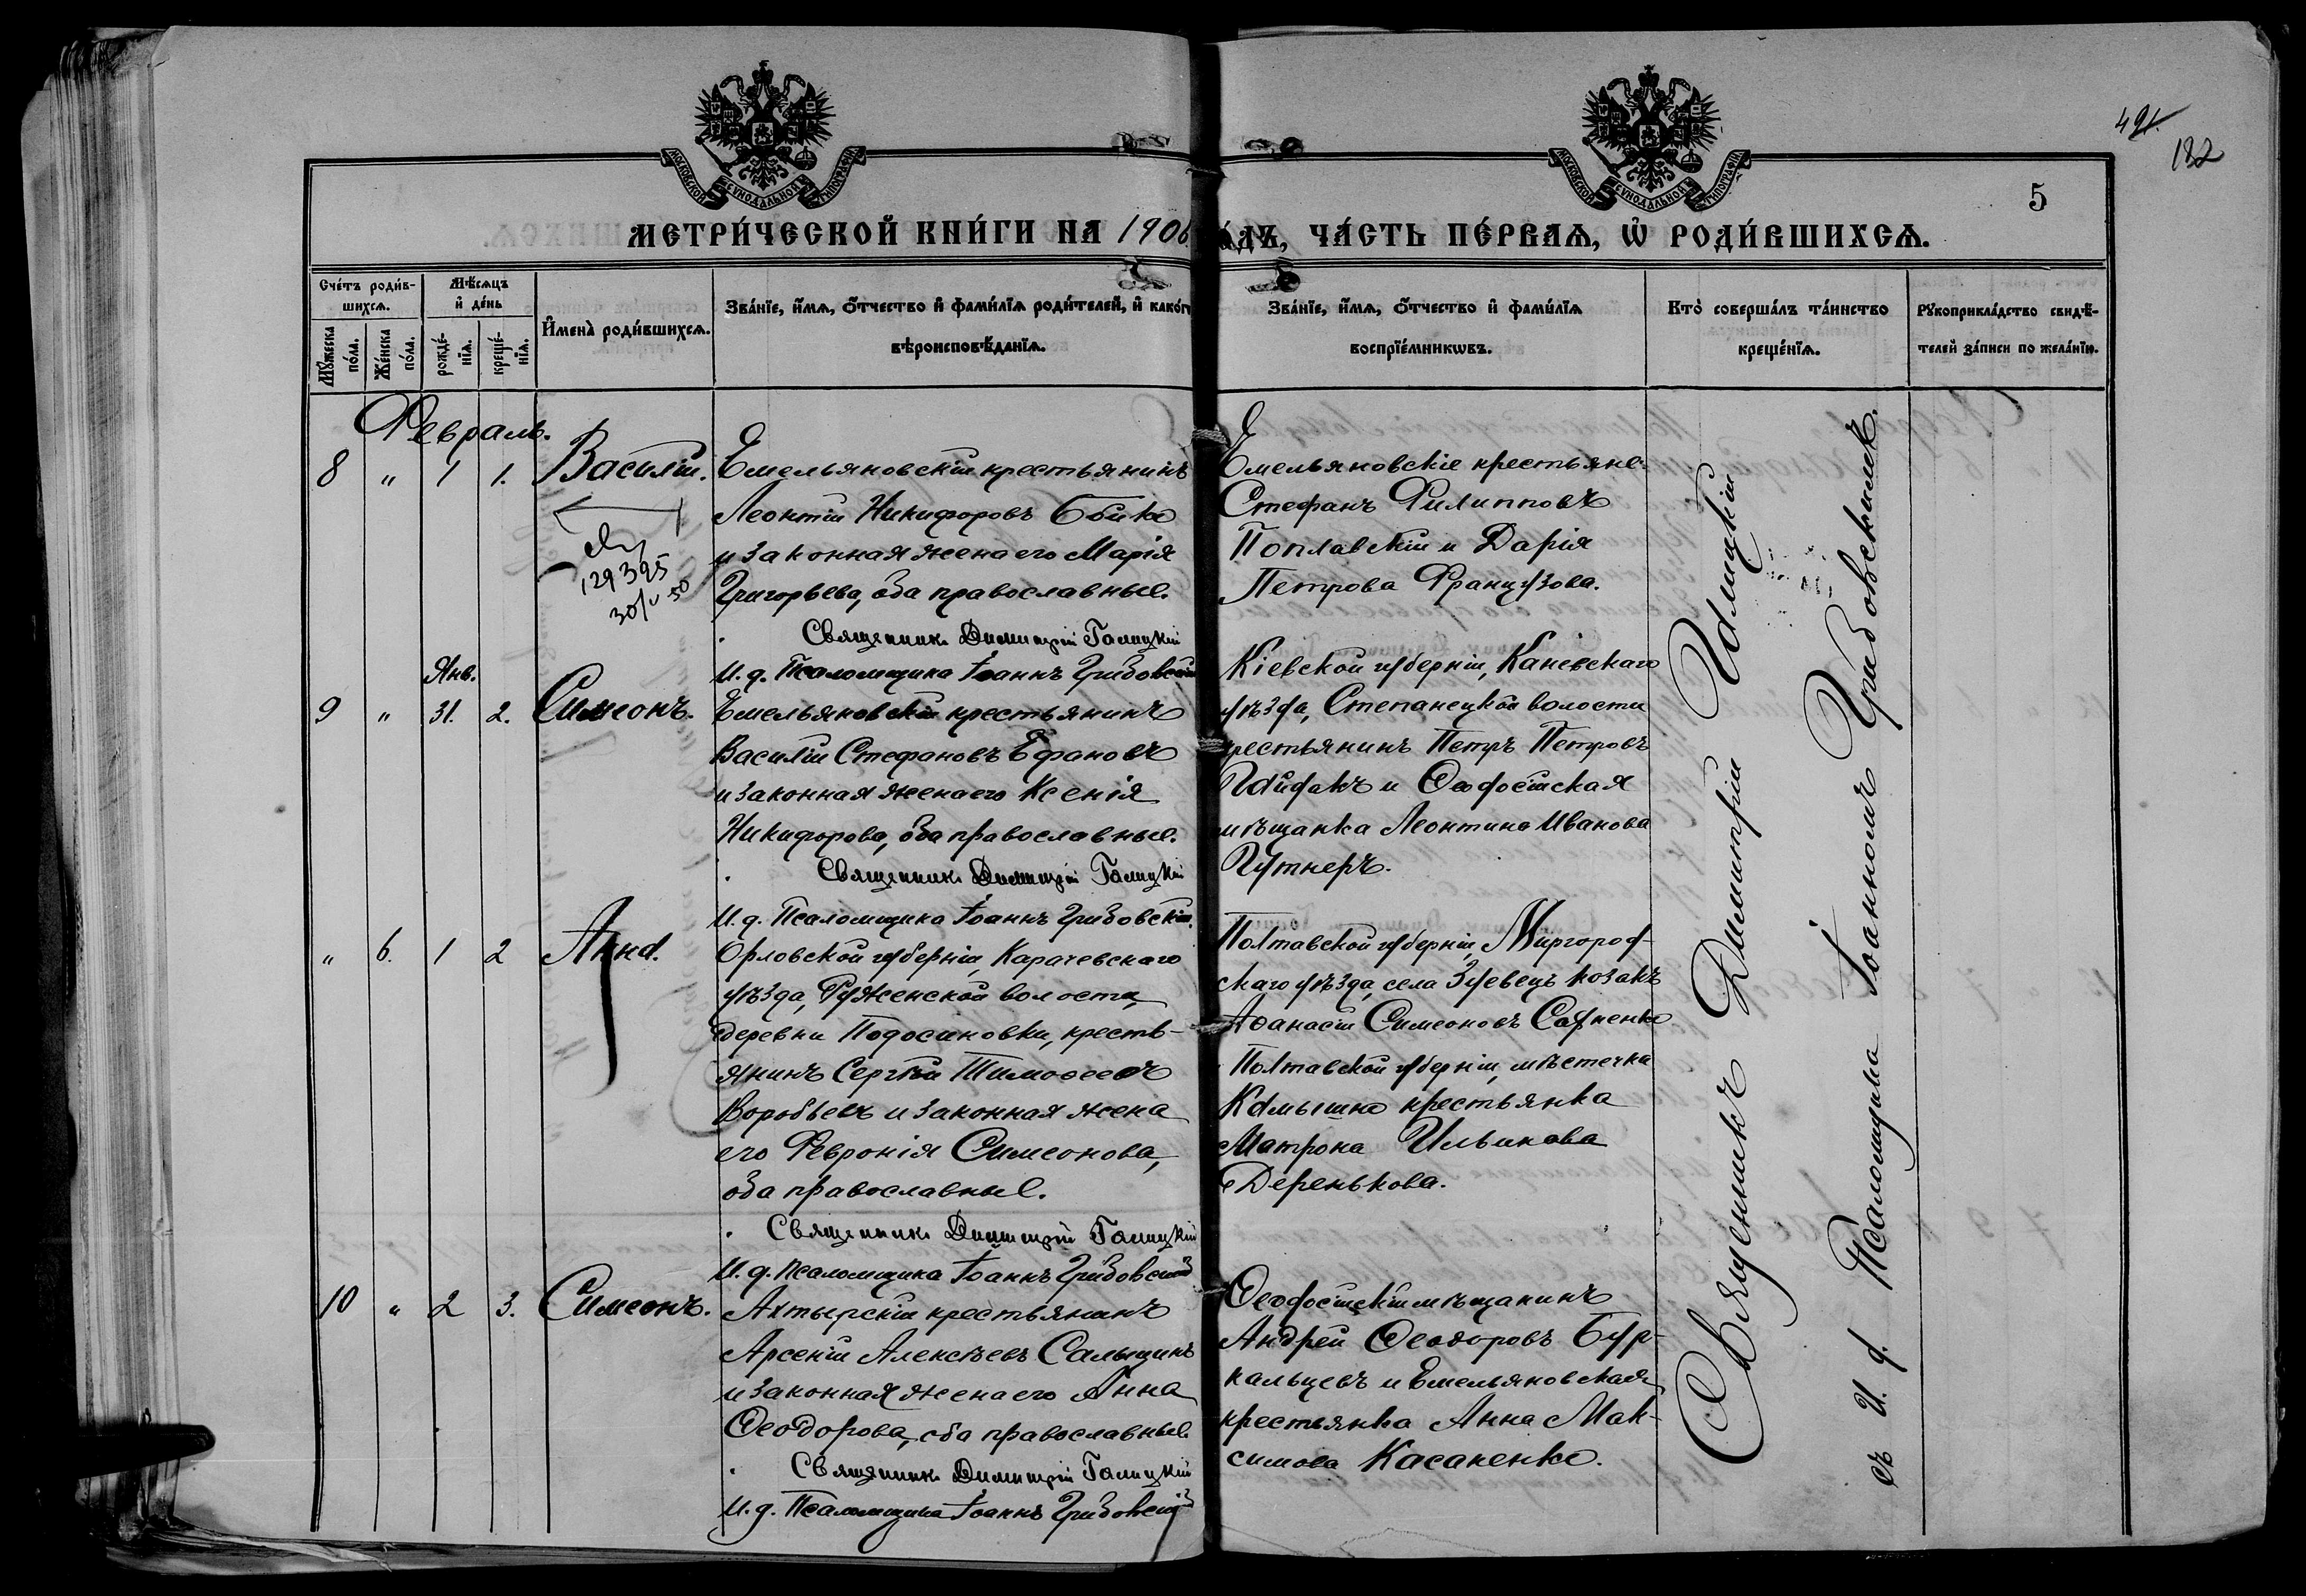 МОСКОВСКОЙ СѴНОДАЛЬНОЙ ТИПОГРАФІИ
МОСКОВСКОЙ СѴНОДАЛЬНОЙ ТИПОГРАФІИ
182
5
МЕТРИ́ЧЕСКОЙ КНИ́ГИ НА 1906
ЧА́СТЬ ПЕ́РВАѦ, Ѡ҆ РОДИ́ВШИХСѦ.
Сче́тъ роди́в-
шихсѧ.
Мѣ́сѧцъ
и҆ де́нь
Мꙋ́жеска
по́ла.
Же́нска
по́ла.
рожде́-
нїѧ.
креще́-
нїѧ.
И҆мена̀ роди́вшихсѧ.
Зва́нїе, и҆́мѧ, ѻ҆́тчество и҆ фами́лїѧ роди́телей, и҆ како́гѡ
вѣроисповѣ́данїѧ.
Зва́нїе, и҆́мѧ, ѻ҆́тчество и҆ фами́лїѧ
воспрїе́мникѡвъ.
Кто̀ соверша́лъ та́инство
креще́нїѧ.
Рꙋкоприкла́дство свидѣ́-
телей за́писи по жела́нїю.
Февраль.
8 " 1 1. Василій.
129395
Емельяновскій крестьянинъ
Леонтій Никифоровъ
и законная жена его Марія
Григорьева, оба православные.
Священникъ Димитрій Галицкій
И. д. Псаломщика Іоаннъ Грибовскій
Емельяновскіе крестьяне
Стефанъ Филипповъ
Поплавскій и Дарія
Петрова Французова.
Янв.
9 " 31. 2. Симеонъ.
Емельяновскій крестьянинъ
Василій Стефановъ Ефановъ
и законная жена его Ксенія
Никифорова, оба православные.
Священникъ Димитрій Галицкій
И. д. Псаломщика Іоаннъ Грибовскій.
Кіевской губерніи, Каневскаго
уѣзда, Степанецкой волости
крестьянинъ Петръ Петровъ
Гайдакъ и Ѳеодосійская
мѣщанка Леонтина Иванова
Гутнеръ.
" 6. 1 2 Анна.
Орловской губерніи, Карачевскаго
уѣзда, Руженской волости,
деревни Подосиновки, кресть-
янинъ Сергѣй Тимоѳеевъ
Воробьевъ и законная жена
его Февронія Симеонова,
оба православные.
Священникъ Димитрій Галицкій
И. д. Псаломщика Іоаннъ Грибовскій
Полтавской губерніи, Миргород-
скаго уѣзда, села Зуевецъ козакъ
Аѳанасій Симеоновъ
Полтавской губерніи, мѣстечка
Камышна крестьянка
Матрона Ильинова
Деренькова.
10 " 2 3. Симеонъ.
Ахтырскій крестьянинъ
Арсеній Алексѣевъ Сальцинъ
и законная жена его Анна
Ѳеодорова, оба православные.
Священникъ Димитрій Галицкій
И. д. Псаломщика Іоаннъ Грибовскій
Ѳеодосійскій мѣщанинъ
Андрей Ѳеодоровъ Бур-
кальцевъ и Емельяновская
крестьянка Анна Мак-
симова Касаненко.
Священникъ Димитрій Галицкій
съ И. д. Псаломщика Іоанномъ Грибовскимъ.